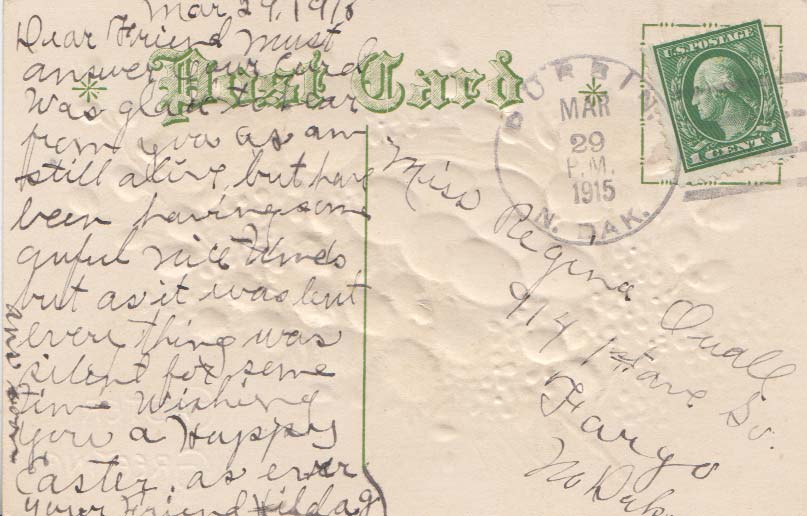 Mar 29, 1915
Dear Friend must
answer your Card
Was glad to hear
from you as am
still alive, but have
been having some
awful nice times
but as it was lent
every thing was
silent for some
time wishing
you a Happy
Easter. as ever
your Friend Hilda G
ans soon
Post Card
DURBIN,
MAR
29
P.M.
1915
N. DAK.
U.S. POSTAGE
1 CENT 1
Miss Regina Quall
914 1st ave So.
Fargo
No Dak